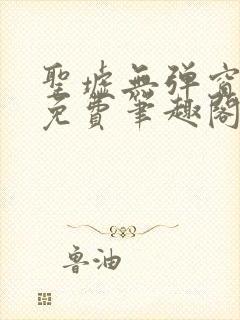 聖墟無彈窗
免費筆趣閣
魯油